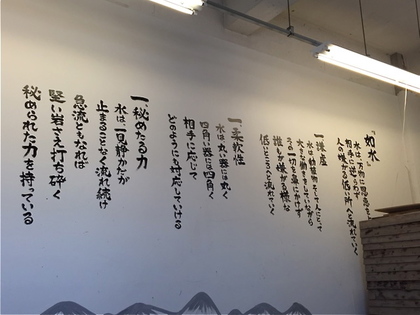 「如水
水は、万物に恩恵を
相手に逆らわず
人の嫌がる低い所へ流れていく
一謙虚
水は動植物そして人にとって
大きな働きをしていながら
その一切を鼻にかけず
誰もが嫌がる様な
低いところへと流れていく
一柔軟性
水は丸い器には丸く
四角い器には四角く
相手に応じて
どのようにも対応していける
一秘めたる力
水は、一見静かだが
止まることなく流れ続け
急流ともなれば
堅い岩さえ打ち砕く
秘められた力を持っている